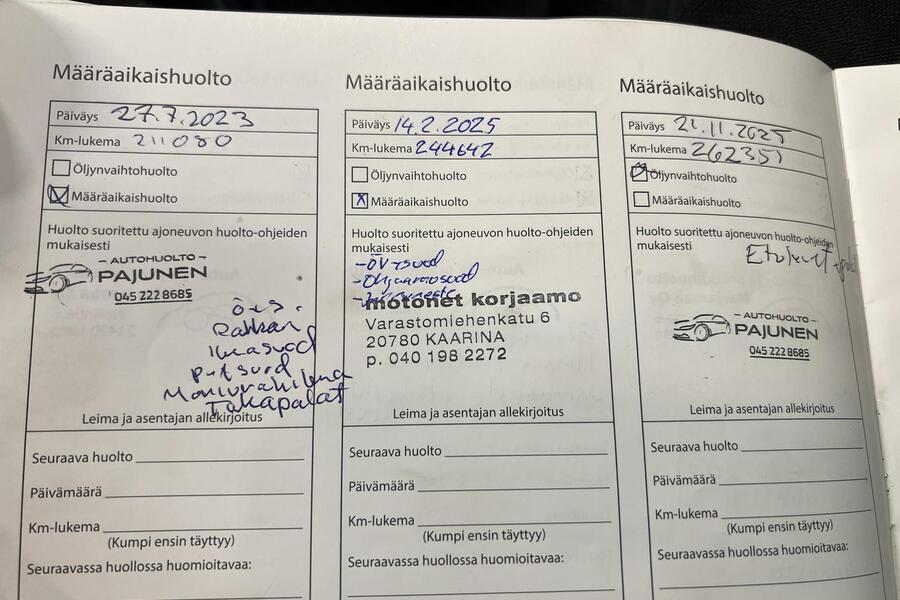 Määräaikaishuolto
Päiväys 27.7.2023
Km-lukema 211080
Öljynvaihtohuolto
Määräaikaishuolto
Huolto suoritettu ajoneuvon huolto-ohjeiden
mukaisesti
AUTOHUOLTO
PAJUNEN
045 222 8685
Ilmasuod
Moniurahihna
Takapalat
Leima ja asentajan allekirjoitus
Seuraava huolto
Päivämäärä
Km-lukema
(Kumpi ensin täyttyy)
Seuraavassa huollossa huomioitavaa:
Määräaikaishuolto
Päiväys 14.2.2025
Km-lukema 244642
Öljynvaihtohuolto
x Määräaikaishuolto
Huolto suoritettu ajoneuvon huolto-ohjeiden
mukaisesti
motonet korjaamo
Varastomiehenkatu 6
20780 KAARINA
p. 040 198 2272
Leima ja asentajan allekirjoitus
Seuraava huolto
Päivämäärä
Km-lukema
(Kumpi ensin täyttyy)
Seuraavassa huollossa huomioitavaa:
Määräaikaishuolto
Päiväys 21.11.2025
Km-lukema 262351
Öljynvaihtohuolto
Määräaikaishuolto
Huolto suoritettu ajoneuvon huolto-ohjeiden
mukaisesti
AUTOHUOLTO
PAJUNEN
045 222 8685
Leima ja asentajan allekirjoitus
Seuraava huolto
Päivämäärä
Km-lukema
(Kumpi ensin täyttyy)
Seuraavassa huollossa huomioitavaa: